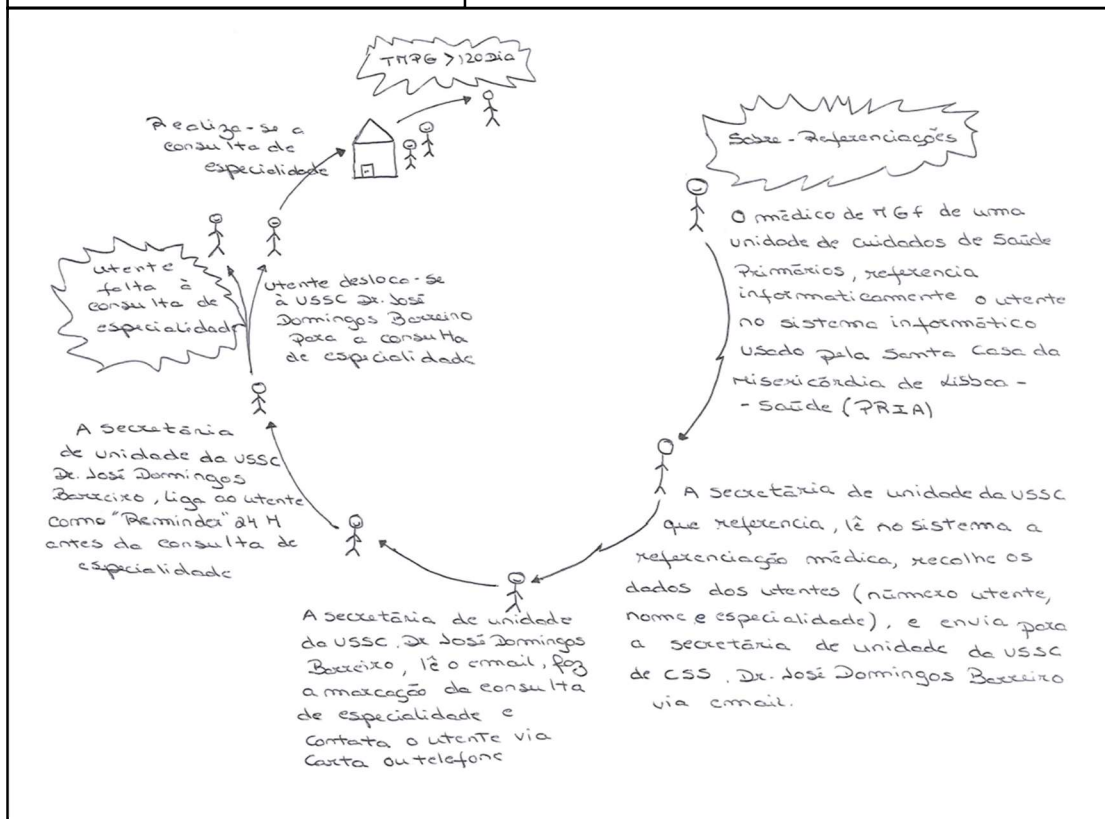 Sobre-Referenciações
O médico de MGF de uma
unidade de cuidados de Saúde
Primários, referencia
informaticamente o utente
no sistema informático
usado pela Santa Casa da
Misericórdia de Lisboa -
- Saúde (PRIA)
A secretária de unidade da USSC
que referencia, lê no sistema a
referenciação médica, recolhe os
dados dos utentes (número utente,
nome e especialidade), e envia para
a secretária de unidade da USSC
de CSS. Dr. José Domingos Barreiro
via email.
A secretária de unidade
da USSC. Dr José Domingos
Barreiro, lê o email, faz
a marcação da consulta
de especialidade e
Contata o utente via
Carta ou telefone
A secretária
de unidade da USSC
Dr. José Domingos
Barreiro, liga ao utente
como "Reminder" 24 H
antes da consulta de
especialidade
utente
falta à
consulta de
especialidade
utente desloca-se
à USSC Dr. José
Domingos Barreiro
para a consulta
de especialidade
Realiza-se a
consulta de
especialidade
TMPG >120 Dia